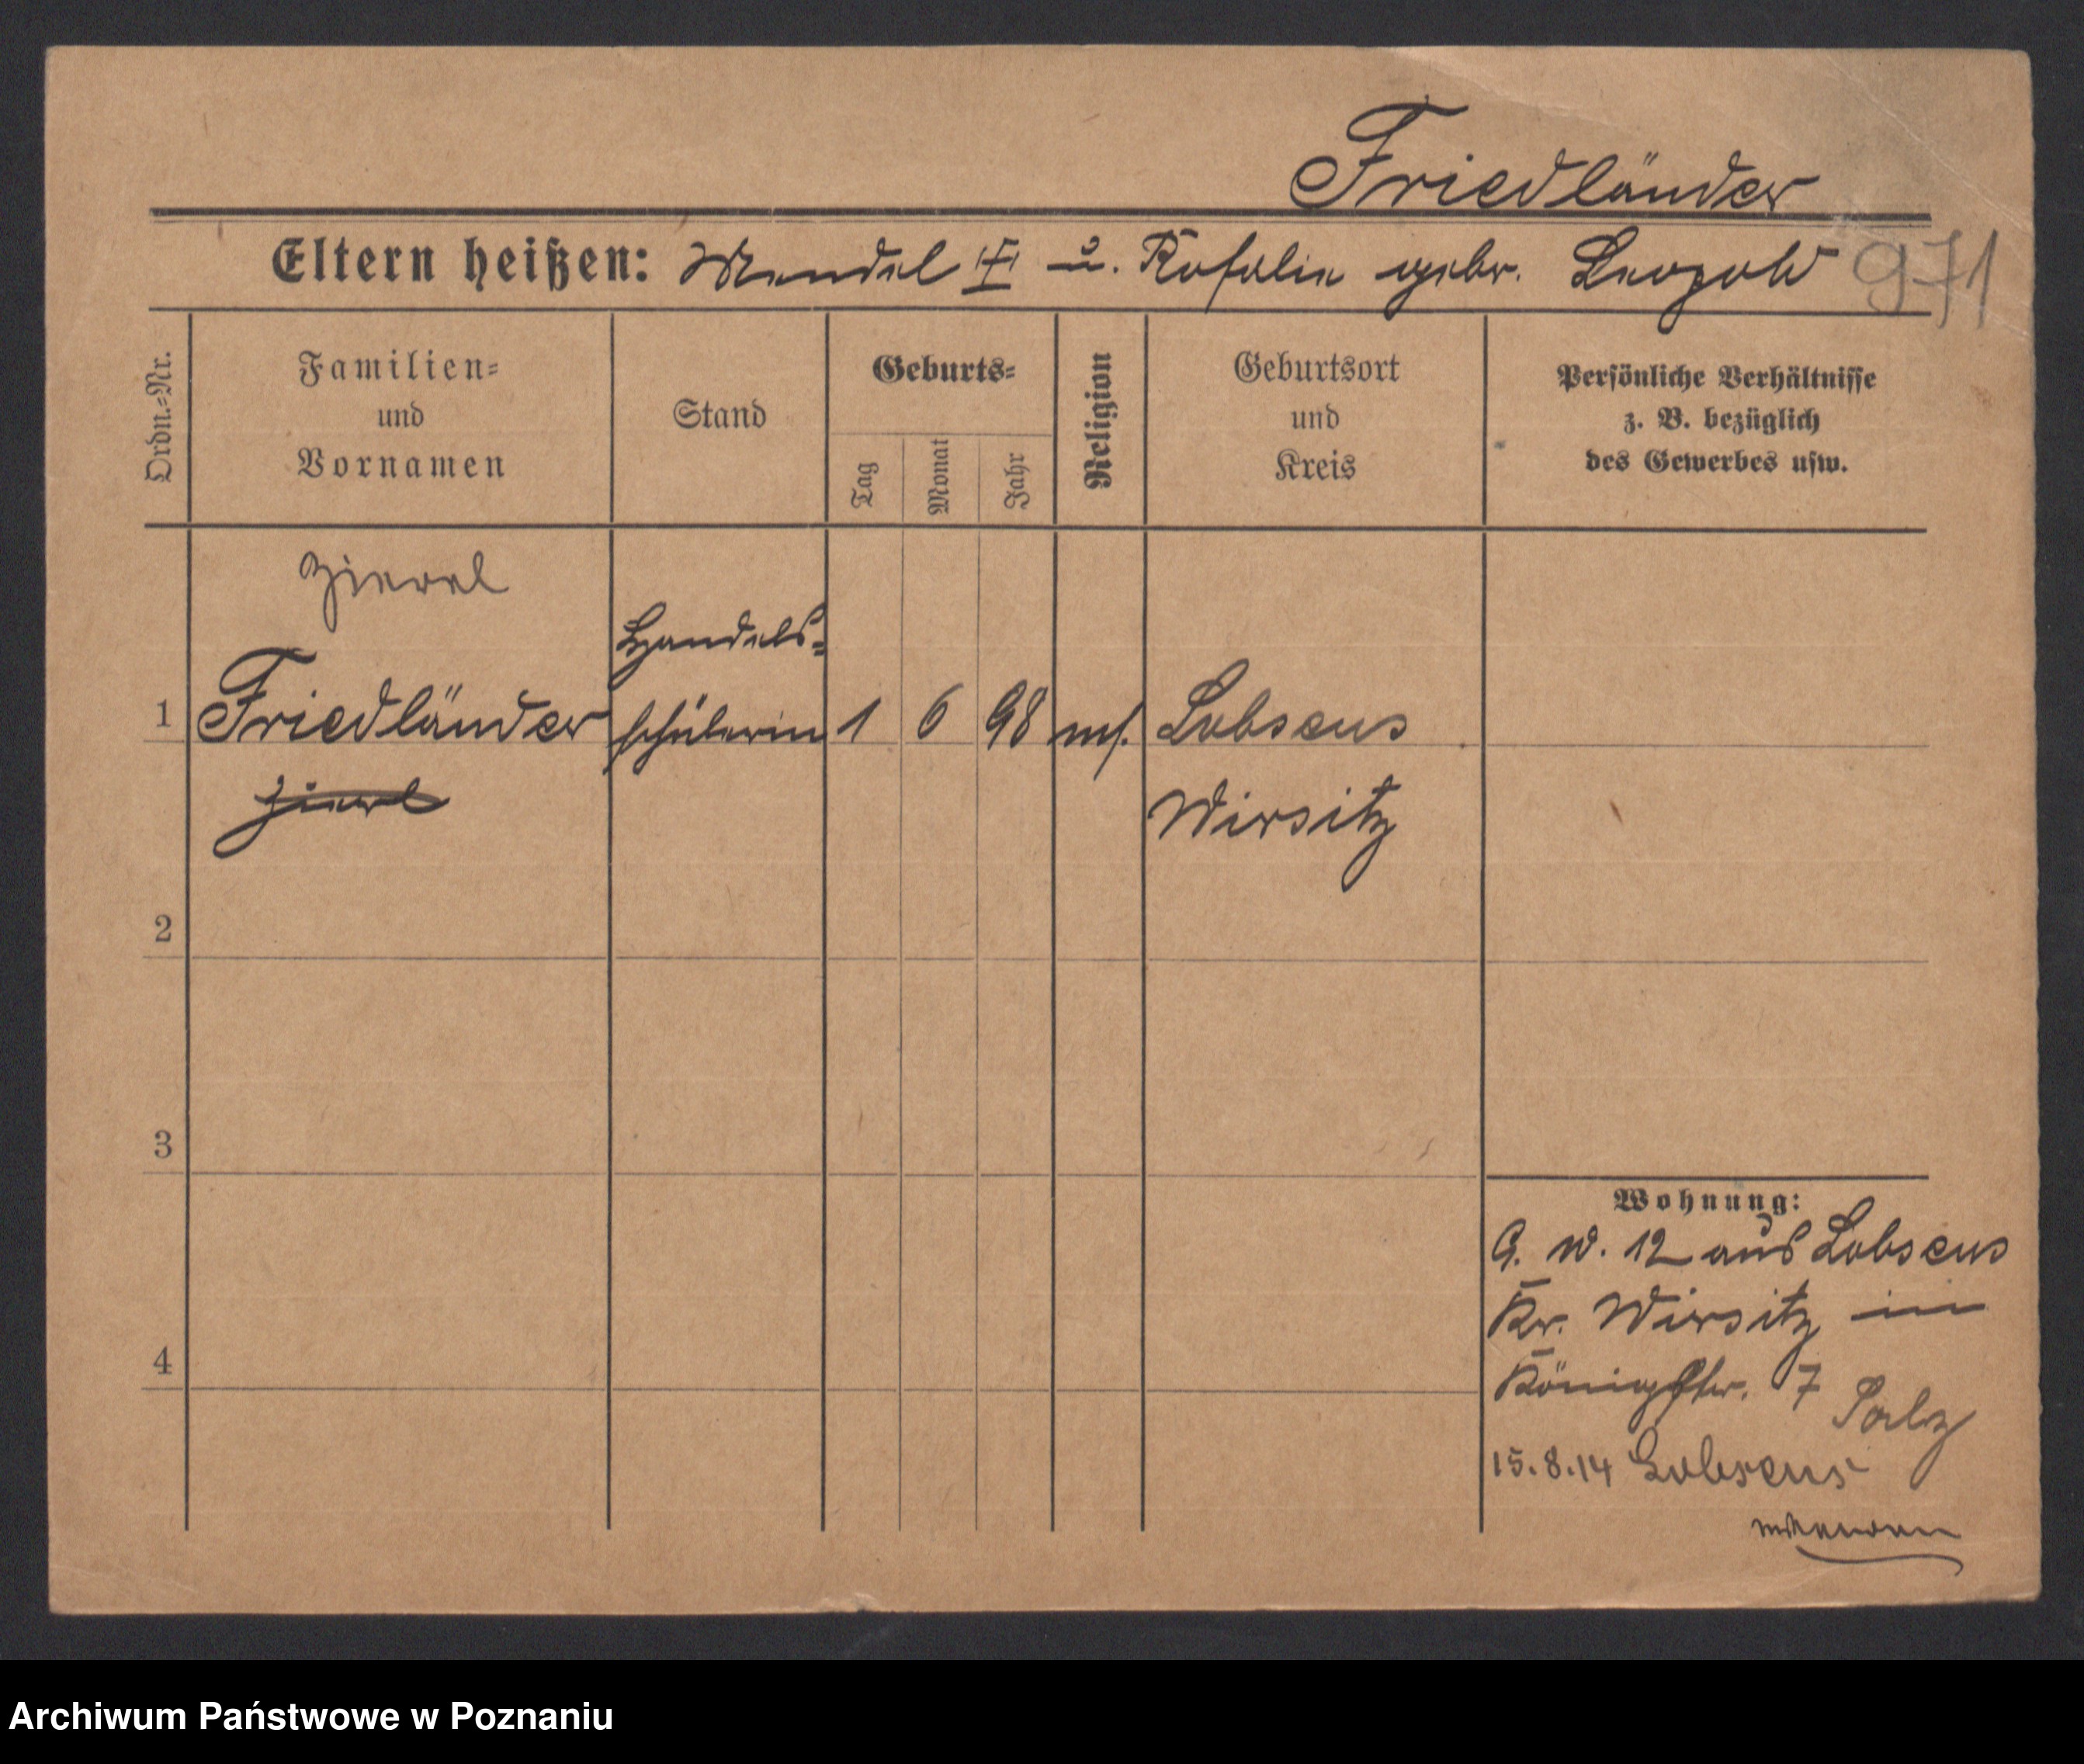 Friedländer
Eltern heißen: Mendel u. Rosalie gebr. Leopold 971
Ordn.-Nr.
Familien-
und
Vornamen
Stand
Geburts-
Tag
Monat
Jahr
Religion
Geburtsort
und
Kreis
Persönliche Verhältnisse
z. B. bezüglich
des Gewerbes usw.
Zierel
Handels-
1 Friedländer schülerin 1 6 98 ms. Lobsens
Wirsitz
2
3
4
Wohnung:
9. IV. 12 aus Lobsens
Kr. Wirsitz in
Königstr. 7
15.8.14 Lobsens
Archiwum Państwowe w Poznaniu